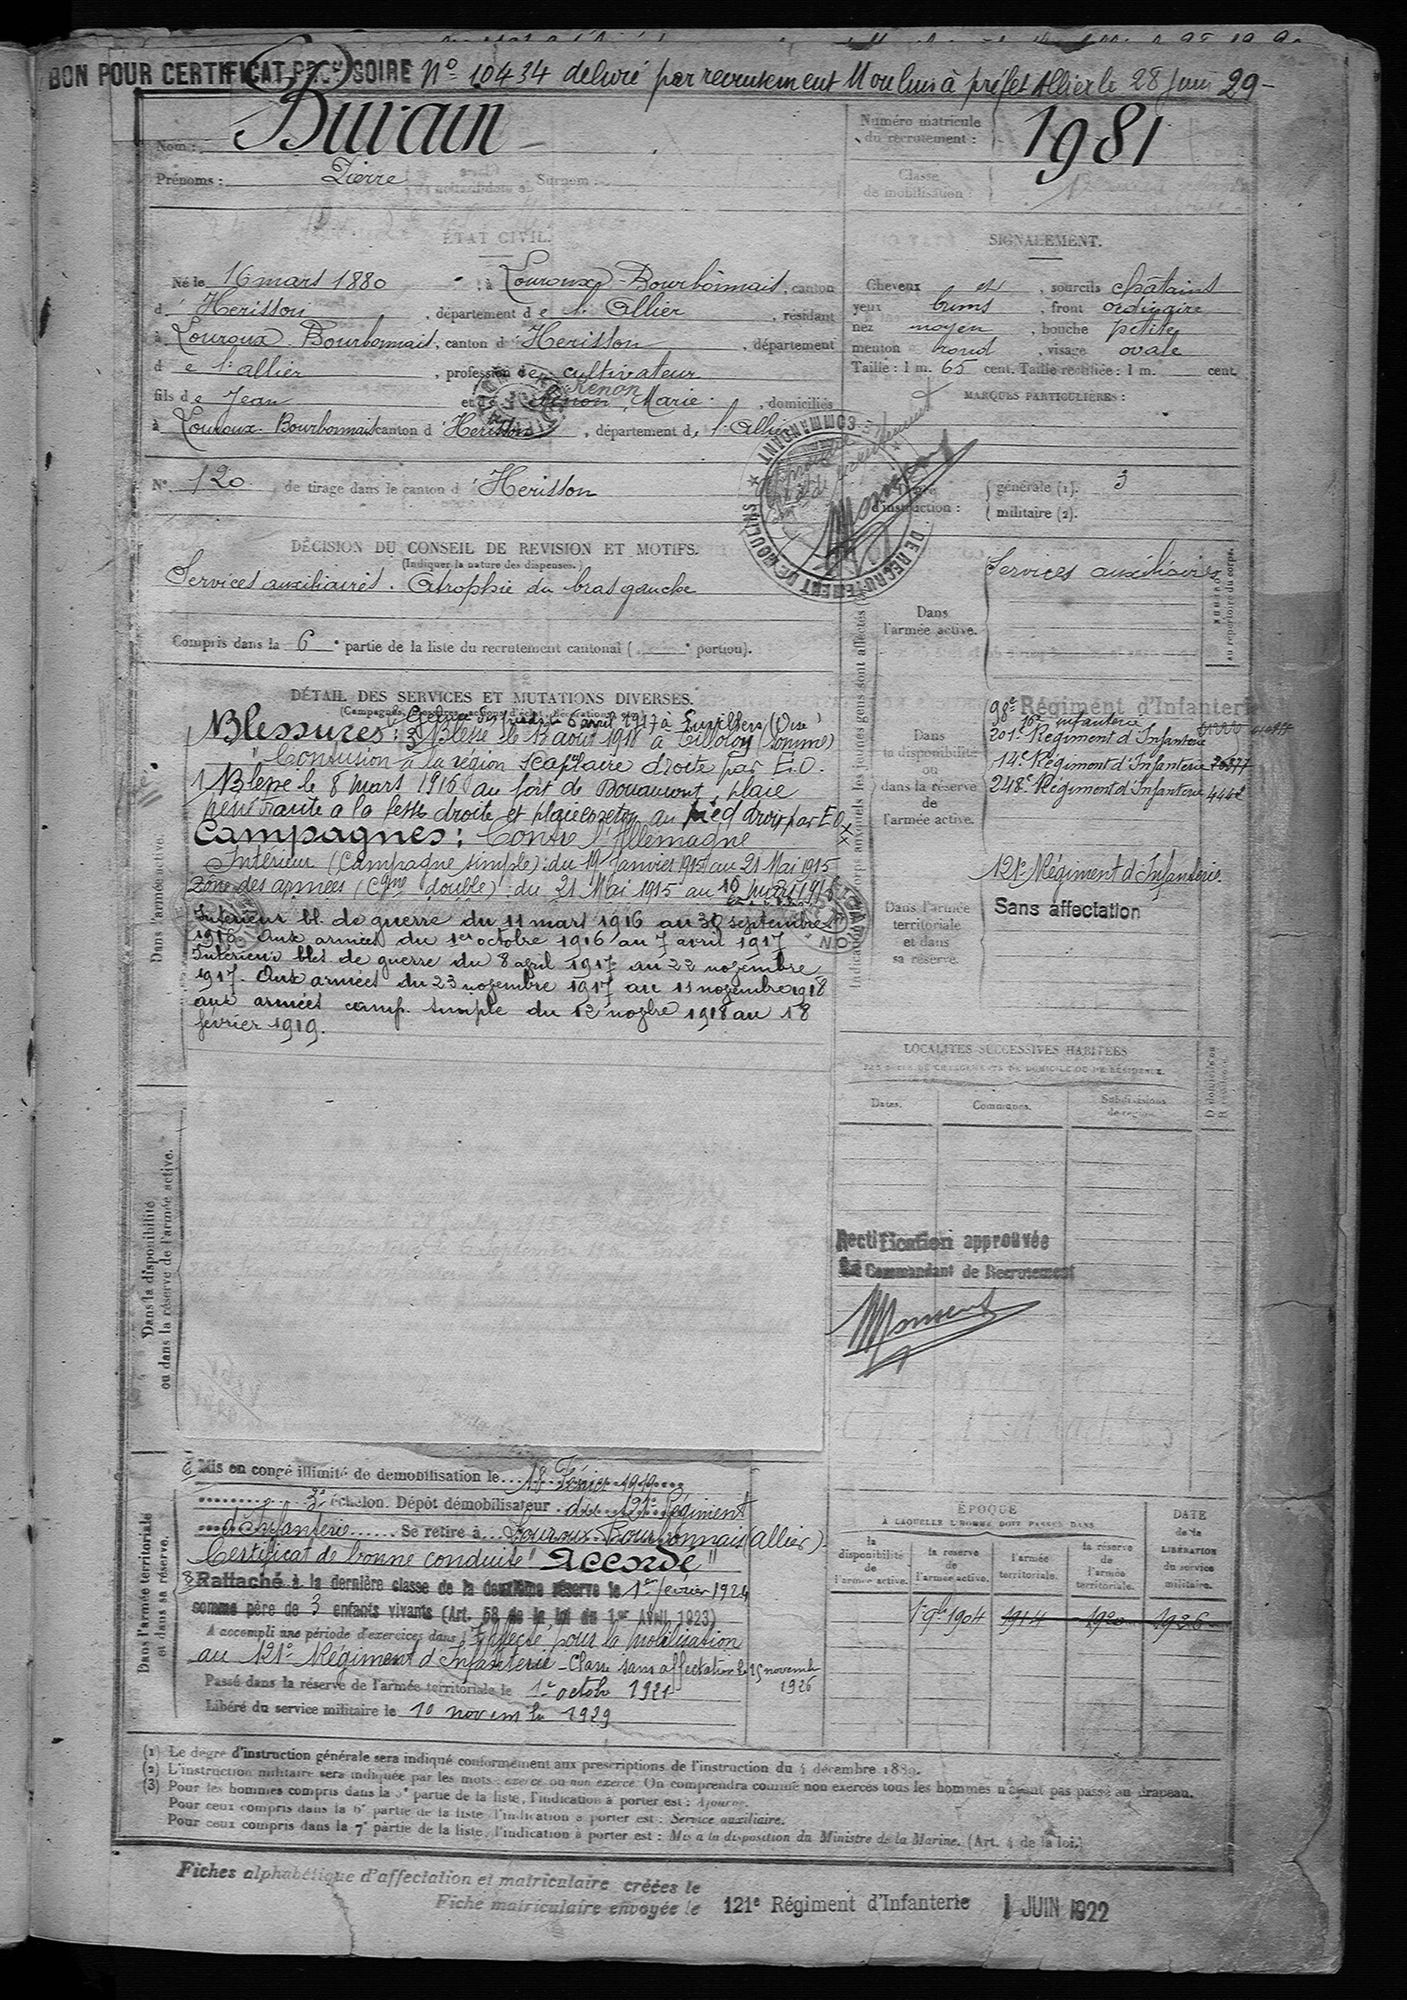 BON POUR CERTIFICAT PROVISOIRE No 10434 delivré par recrutement Moulins à préfet Allier le 28 Juin 29-
Nom : Burain
Prénoms : Pierre Surnom :
Numéro matricule du recrutement : 1981
Classe de mobilisation :
ÉTAT CIVIL.
Né le 16 mars 1880, à Louroux-Bourbonnais, canton
d'Herisson, département de l'Allier, résidant
à Louroux-Bourbonnais, canton d'Herisson, département
de l'allier, profession de cultivateur
fils de Jean et de Renon Marie, domiciliés
à Louroux-Bourbonnais canton d'Herisson, département de l'Allier
SIGNALEMENT.
Cheveux et, sourcils châtains
yeux bruns, front ordinaire
nez moyen, bouche petite
menton rond, visage ovale
Taille : 1 m. 65 cent. Taille rectifiée : 1 m. cent.
MARQUES PARTICULIÈRES :
No 120 de tirage dans le canton d'Herisson
COMMANDANT DE RECRUTEMENT DE MOULINS
Degré d'instruction : générale (1). 3
militaire (2).
DÉCISION DU CONSEIL DE REVISION ET MOTIFS.
(Indiquer la nature des dispenses.)
Services auxiliaires. Atrophie du bras gauche
Compris dans la 6e partie de la liste du recrutement cantonal ( e portion).
Indication des corps auxquels les jeunes gens sont affectés
Dans l'armée active.
Services auxiliaires
NUMÉRO au répertoire du corps.
DÉTAIL DES SERVICES ET MUTATIONS DIVERSES.
Gelure des pieds le 6 avril 1917 à Luvilliers (Oise)
Blessures : 3 Blessé le 13 aout 1918 à Tilloloy (Somme)
Contusion à la région scapulaire droite par E.O.
1 Blessé le 8 mars 1916 au fort de Douaumont, plaie
pénétrante a la fesse droite et plaie au pied droit par E O
Campagnes : Contre l'Allemagne
Intérieur (Campagne simple) : du 19 Janvier 1915 au 21 Mai 1915
Zône des armées (Cgne double) : du 21 Mai 1915 au 10 mars 1916
Interieur bl. de guerre du 11 mars 1916 au 30 septembre
1916. Aux armées du 1er octobre 1916 au 7 avril 1917
Intérieur bles. de guerre du 8 avril 1917 au 22 novembre
1917. Aux armées du 23 novembre 1917 au 11 novembre 1918
aux armées camp. simple du 12 novbre 1918 au 18
février 1919.
Dans la disponibilité ou dans la réserve de l'armée active.
98e Régiment d'Infanterie
16e infanterie
201e Régiment d'Infanterie
14e Régiment d'Infanterie
248e Régiment d'Infanterie 4442
Dans l'armée territoriale et dans sa réserve.
121e Régiment d'Infanterie.
Sans affectation
LOCALITÉS SUCCESSIVES HABITÉES
PAR SUITE DE CHANGEMENTS DE DOMICILE OU DE RÉSIDENCE.
Dates. Communes. Subdivisions de région. D domicile ou R résidence.
Rectification approuvée
Le Commandant de Recrutement
Dans l'armée active.
Dans la disponibilité ou dans la réserve de l'armée active.
Dans l'armée territoriale et dans sa réserve.
Mis en congé illimité de démobilisation le 18 Février 1919
3e échelon. Dépôt démobilisateur du 121e Régiment
d'Infanterie Se retire à Louroux Bourbonnais (Allier)
Certificat de bonne conduite "Accordé"
Rattaché à la dernière classe de la deuxième réserve le 1er février 1924
comme père de 3 enfants vivants (Art. 58 de la loi du 1er Avril 1923)
A accompli une période d'exercices dans Affecté pour la mobilisation
au 121e Régiment d'Infanterie - Classé sans affectation le 15 novembre 1926
Passé dans la réserve de l'armée territoriale le 1er octobre 1921
Libéré du service militaire le 10 novembre 1929
ÉPOQUE
À LAQUELLE L'HOMME DOIT PASSER DANS
DATE de la LIBÉRATION du service militaire.
la disponibilité de l'armée active. la réserve de l'armée active. l'armée territoriale. la réserve de l'armée territoriale.
1904 1914 1920 1926
(1) Le degré d'instruction générale sera indiqué conformément aux prescriptions de l'instruction du 4 décembre 1889.
(2) L'instruction militaire sera indiquée par les mots : exercé ou non exercé. On comprendra comme non exercés tous les hommes n'ayant pas passé au drapeau.
(3) Pour les hommes compris dans la 5e partie de la liste, l'indication à porter est : Ajourné.
Pour ceux compris dans la 6e partie de la liste, l'indication à porter est : Service auxiliaire.
Pour ceux compris dans la 7e partie de la liste, l'indication à porter est : Mis à la disposition du Ministre de la Marine. (Art. 4 de la loi.)
Fiches alphabétique d'affectation et matriculaire créées le
Fiche matriculaire envoyée le 121e Régiment d'Infanterie 1 JUIN 1922